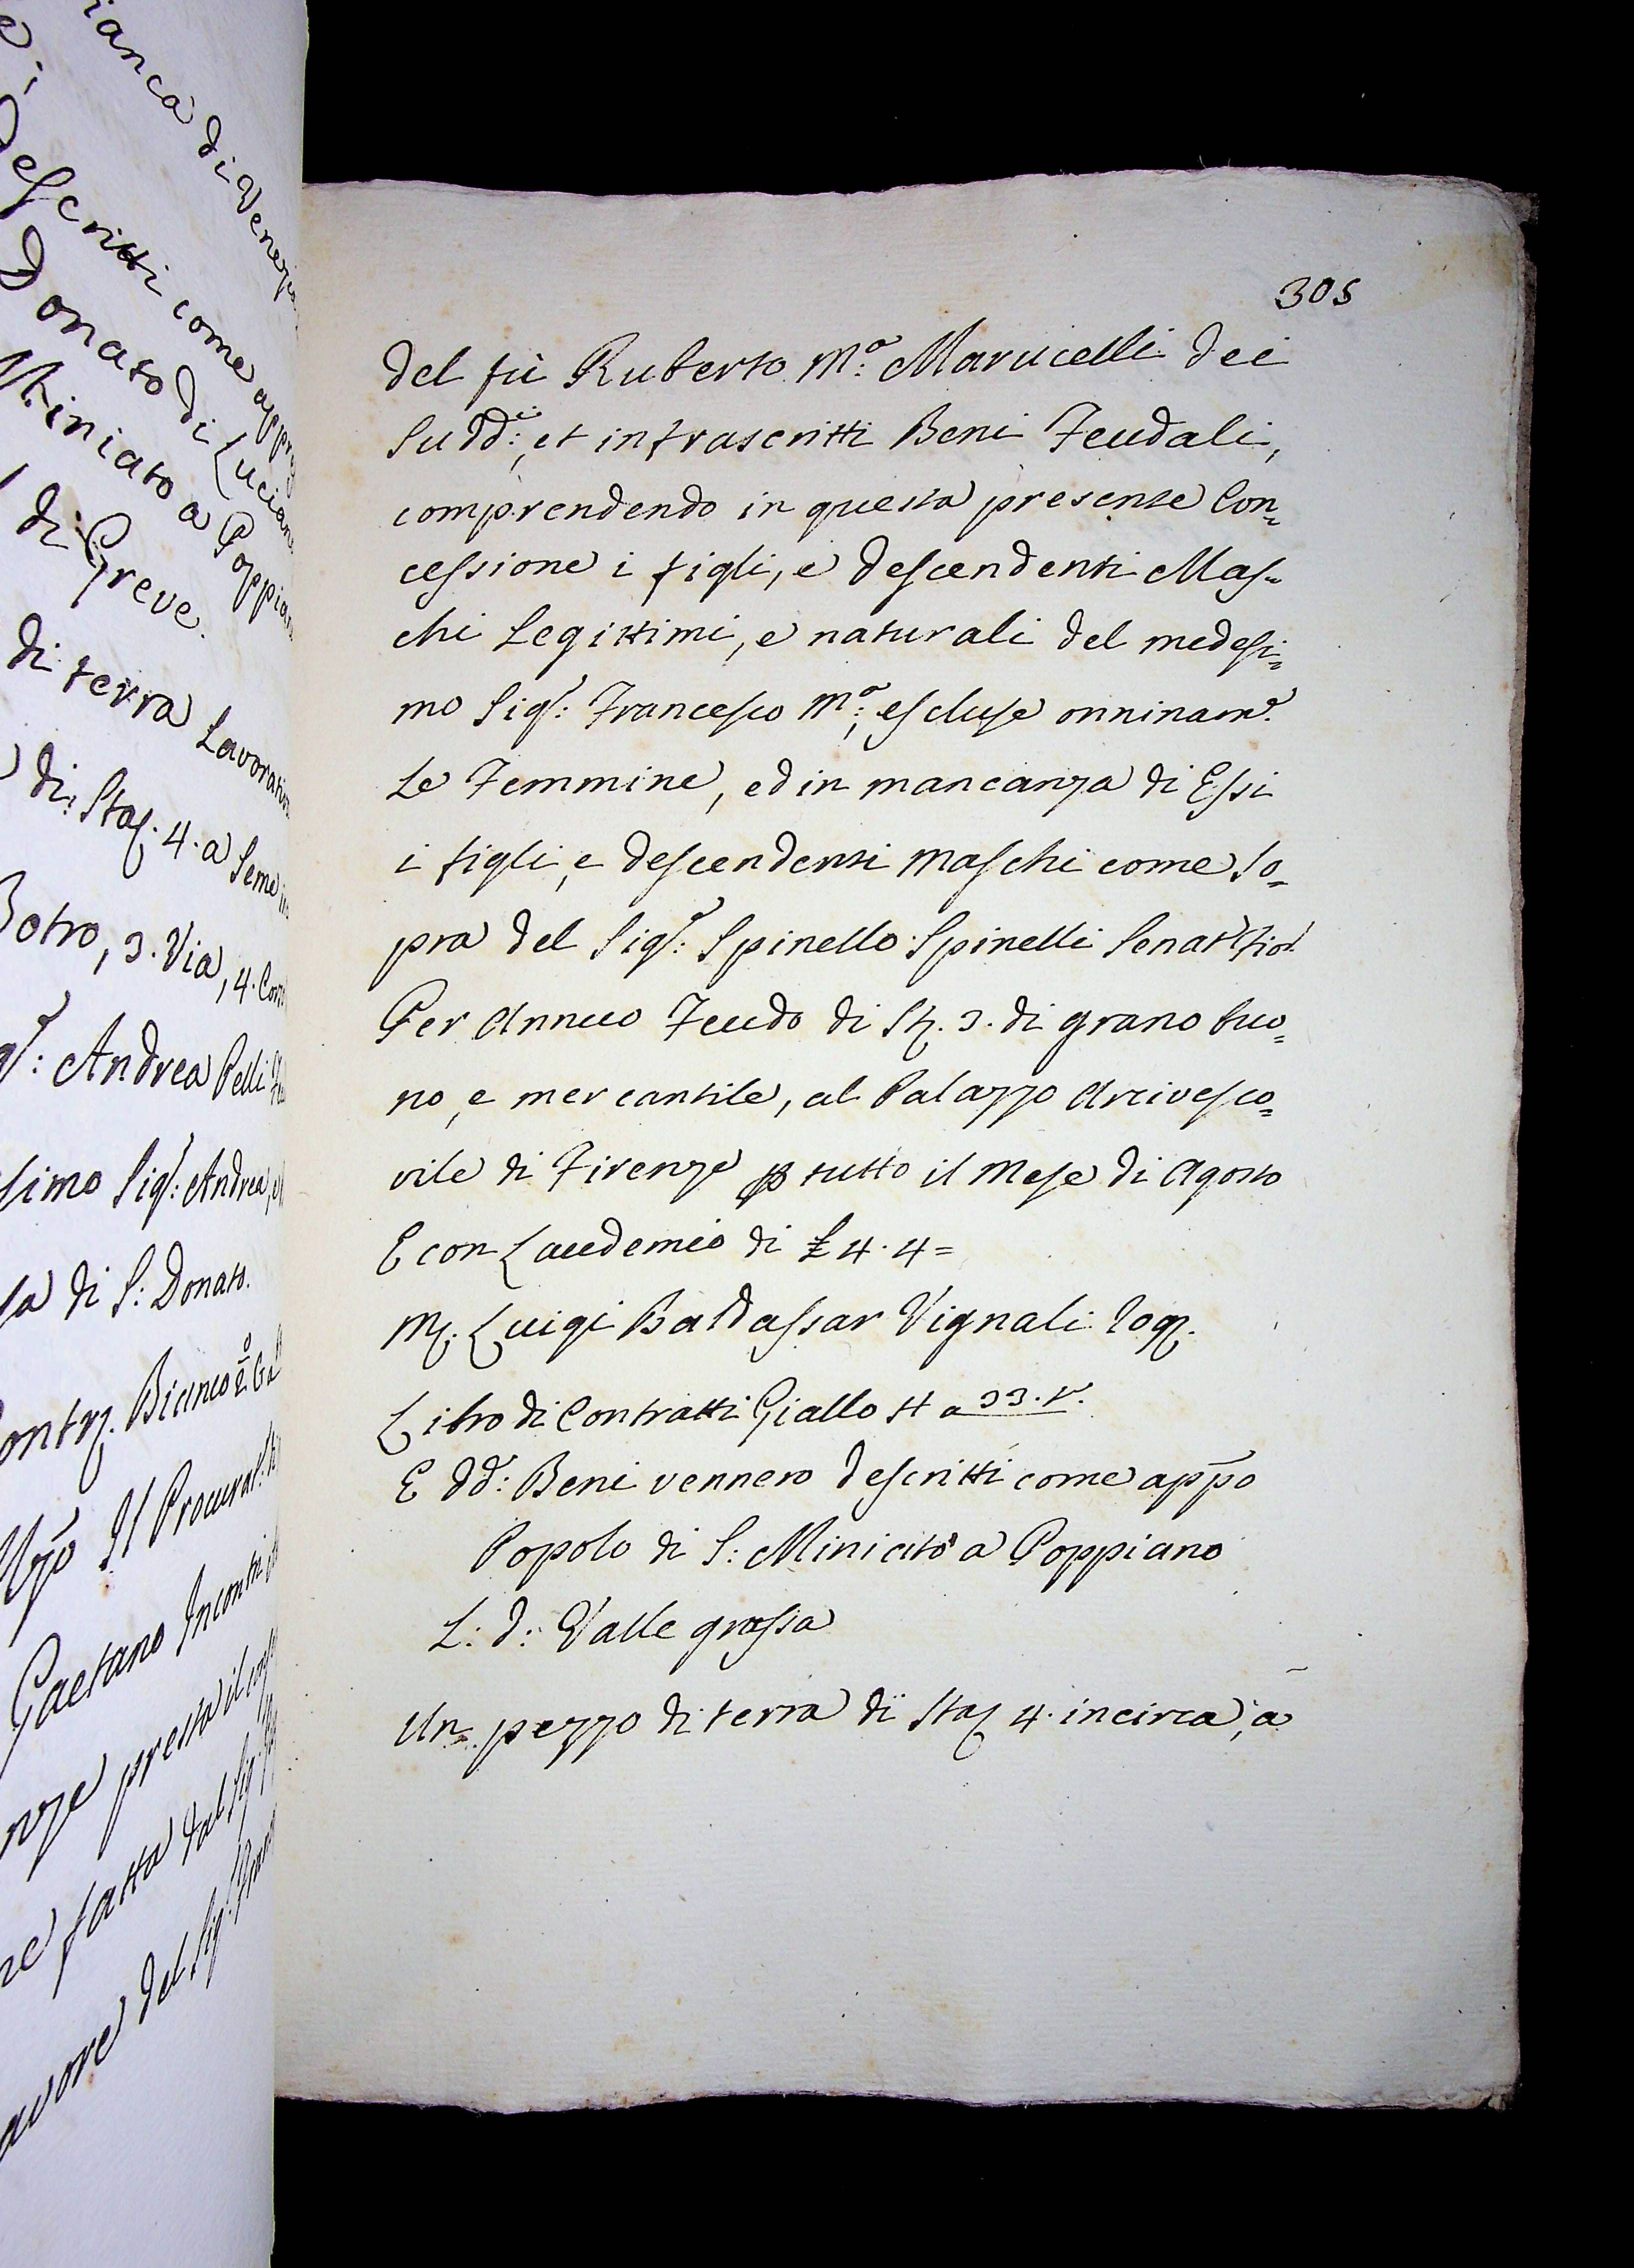 ianca di Venezia
Descritti come appr
Donato di Lucian
Miniato a Poppian
di Greve.
di terra Lavorativa
di Staj. 4. a Seme in
Botro, 3. Via, 4.
Andrea Pelli
ssimo Sigr: Andrea, e
sa di S: Donato.
Contrj. Bianco 2.º
Il Procurat:
Gaetano Incontri
nze presta il
ne fatta dal Sig:
avore del Sig:
305
del fù Ruberto Mª: Marucelli dei
Sudd.i:, et infrascritti Beni Feudali,
comprendendo in questa presente Con=
cessione i figli, e descendenti Mas=
chi Legittimi, e naturali del medesi=
mo Sigr: Francesco Mª:, escluse onninamᵉ.
Le Femmine, ed in mancanza di Essi
i figli, e descendenti Maschi come So=
pra del Sigr: Spinello Spinelli Senatr Fior.
Per Annuo Feudo di St. 3. di grano buo=
no, e mercantile, al Palazzo Arcivesco=
vile di Firenze p tutto il Mese di Agosto
E con Laudemio di £ 4. 4=
Mr. Luigi Baldassar Vignali Rog.
Libro di Contratti Giallo H a 33. tº.
E dd.: Beni vennero descritti come appō
Popolo di S: Miniato a Poppiano
L: d: Valle grossa
Un pezzo di terra di Staj 4. incirca, a